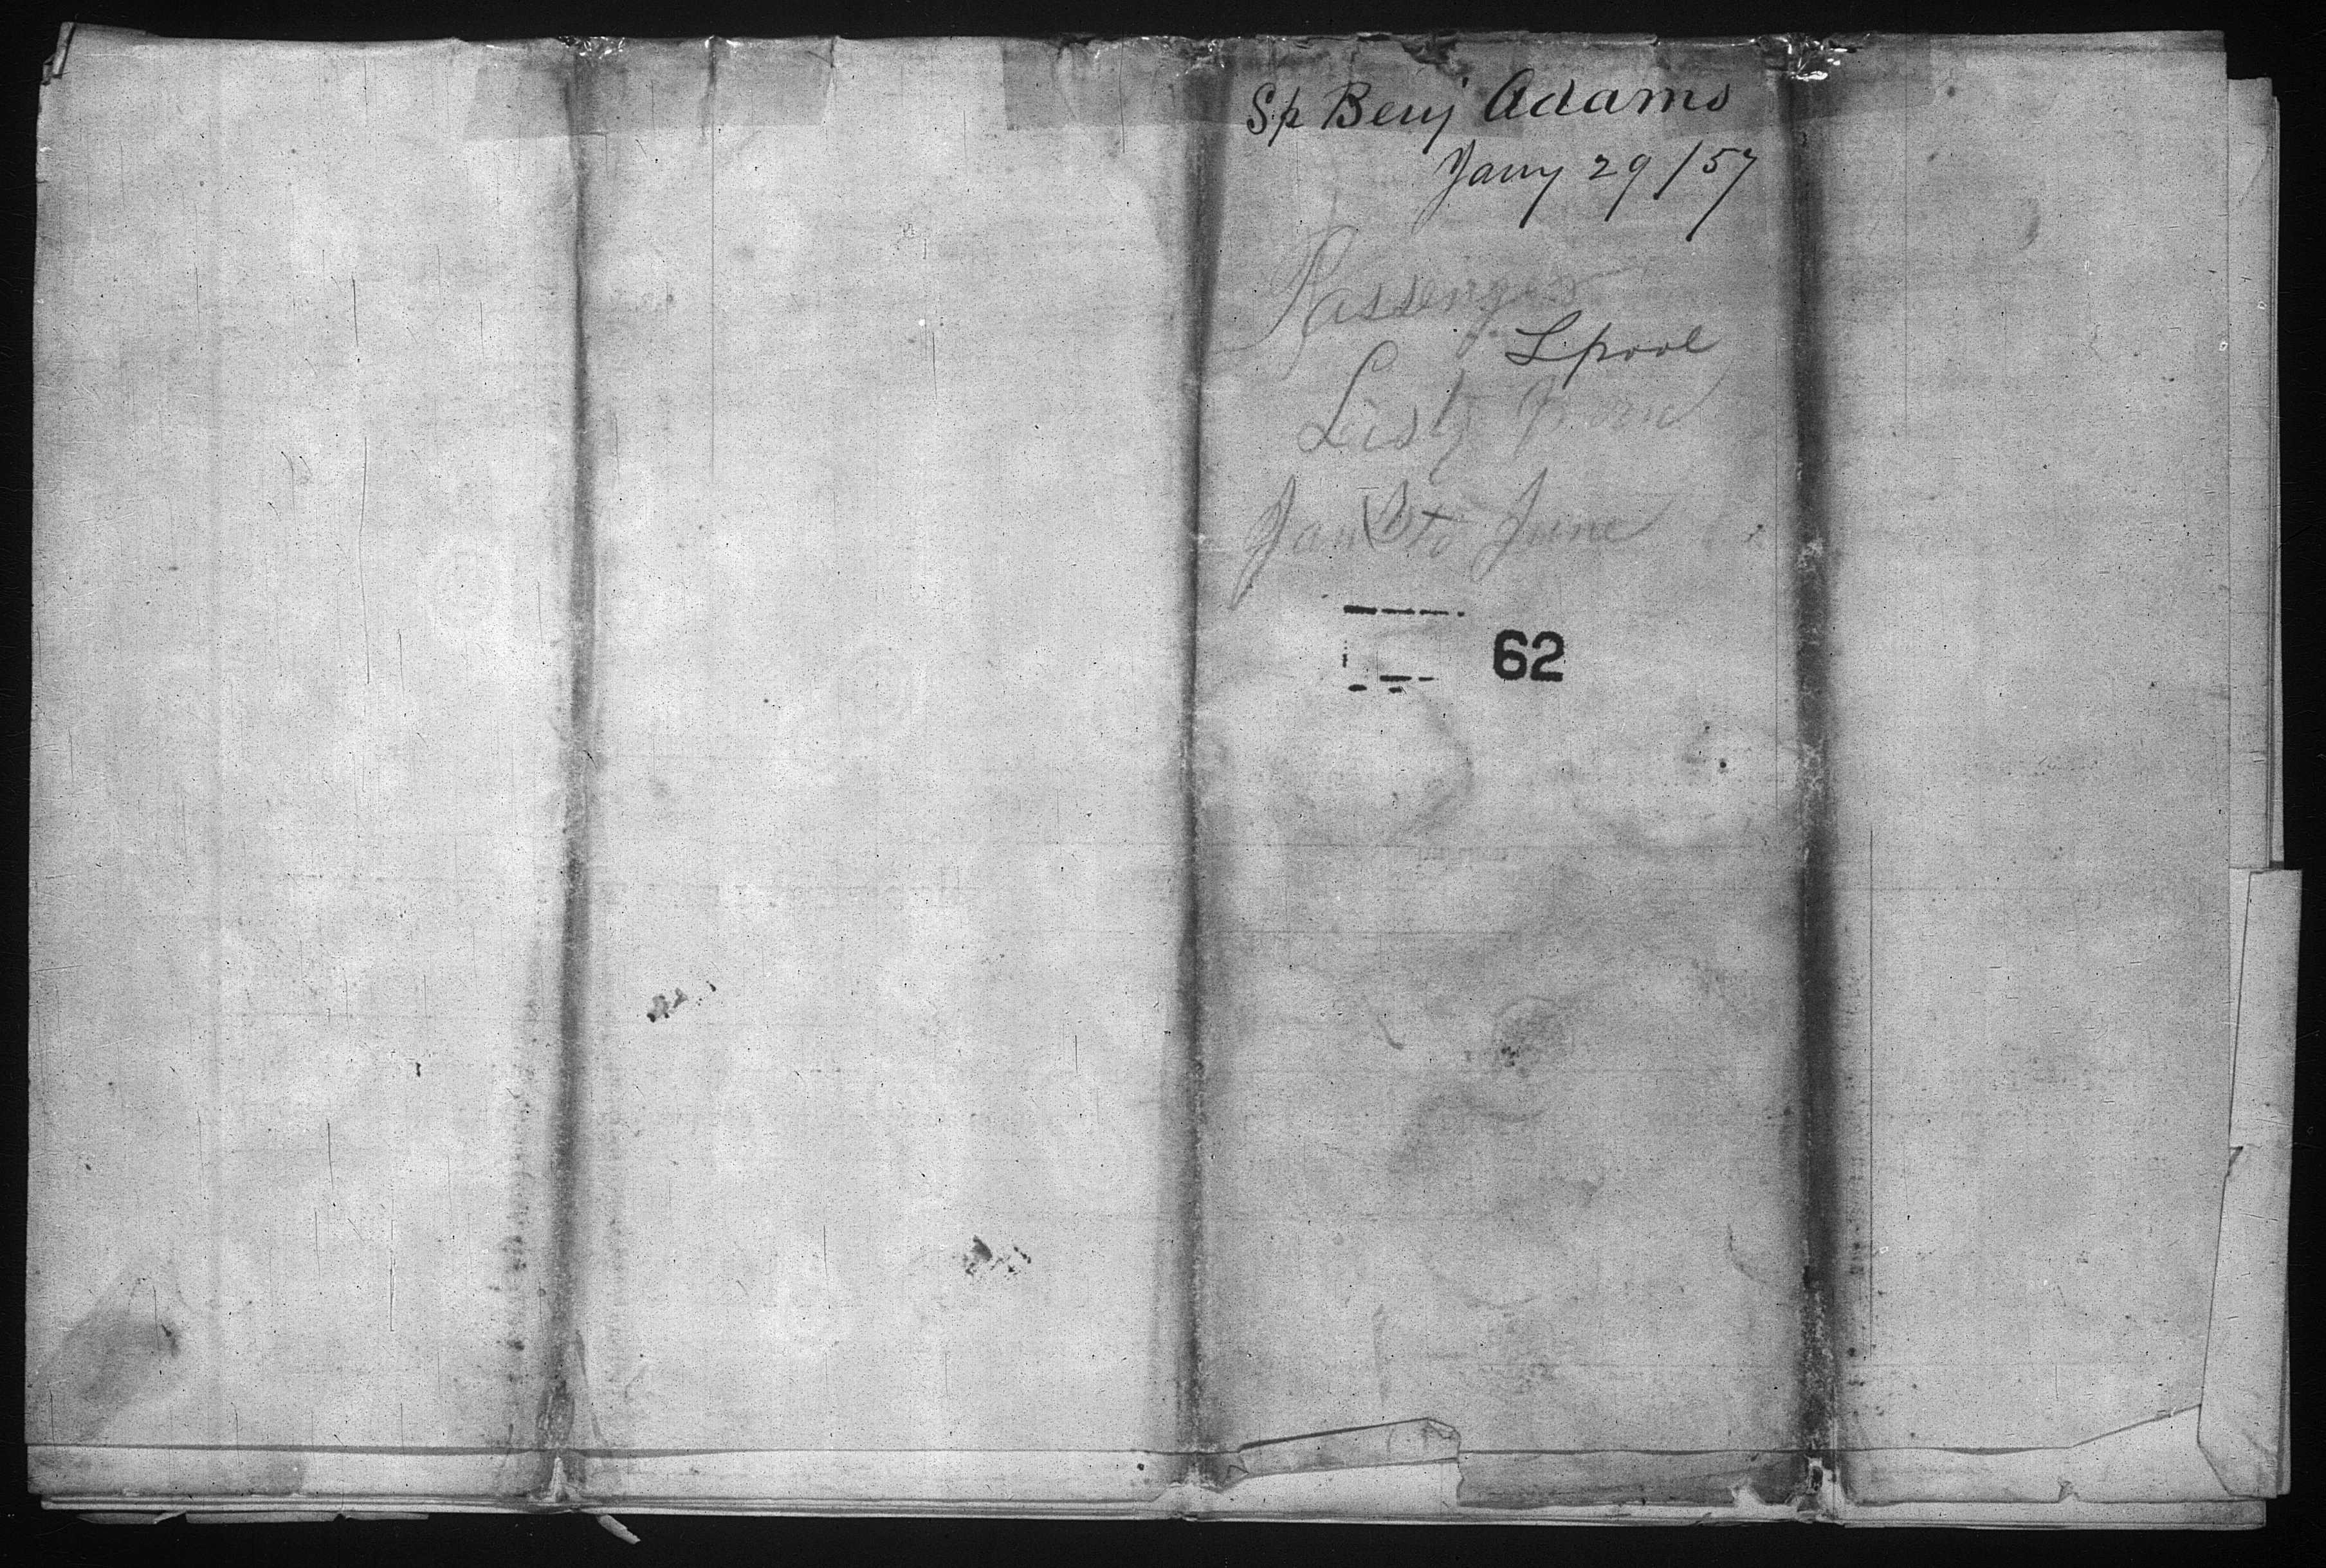 Sp Benj Adams
Jany 29/57
Passenger
Lpool
Lists from
Jan to June
62